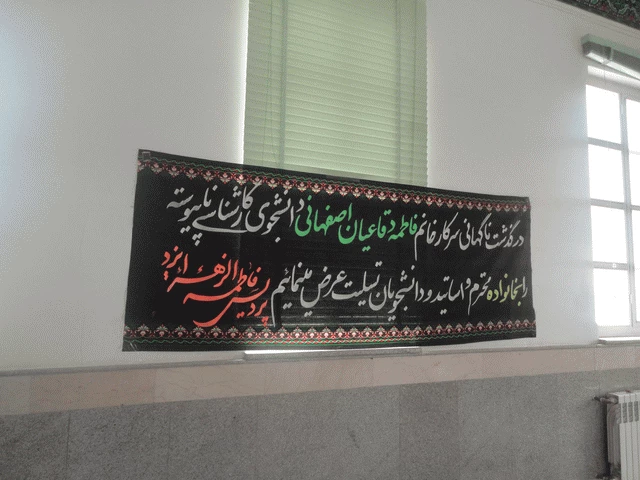 درگذشت ناگهانی سرکار خانم فاطمه دقاعیان اصفهانی دانشجوی کارشناسی ناپیوسته
را به خانواده محترم و اساتید و دانشجویان تسلیت عرض مینمائیم پردیس فاطمه الزهرا یزد